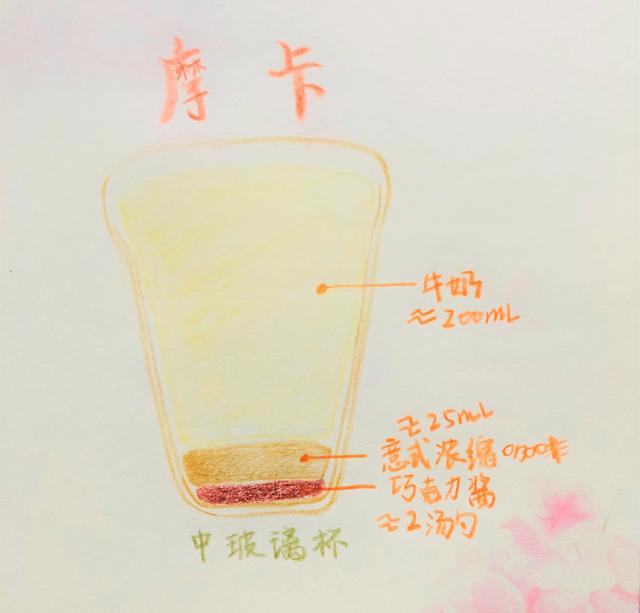 摩卡
牛奶
≈200mL
≈25mL
意式浓缩咖啡
巧克力酱
≈2汤勺
中玻璃杯